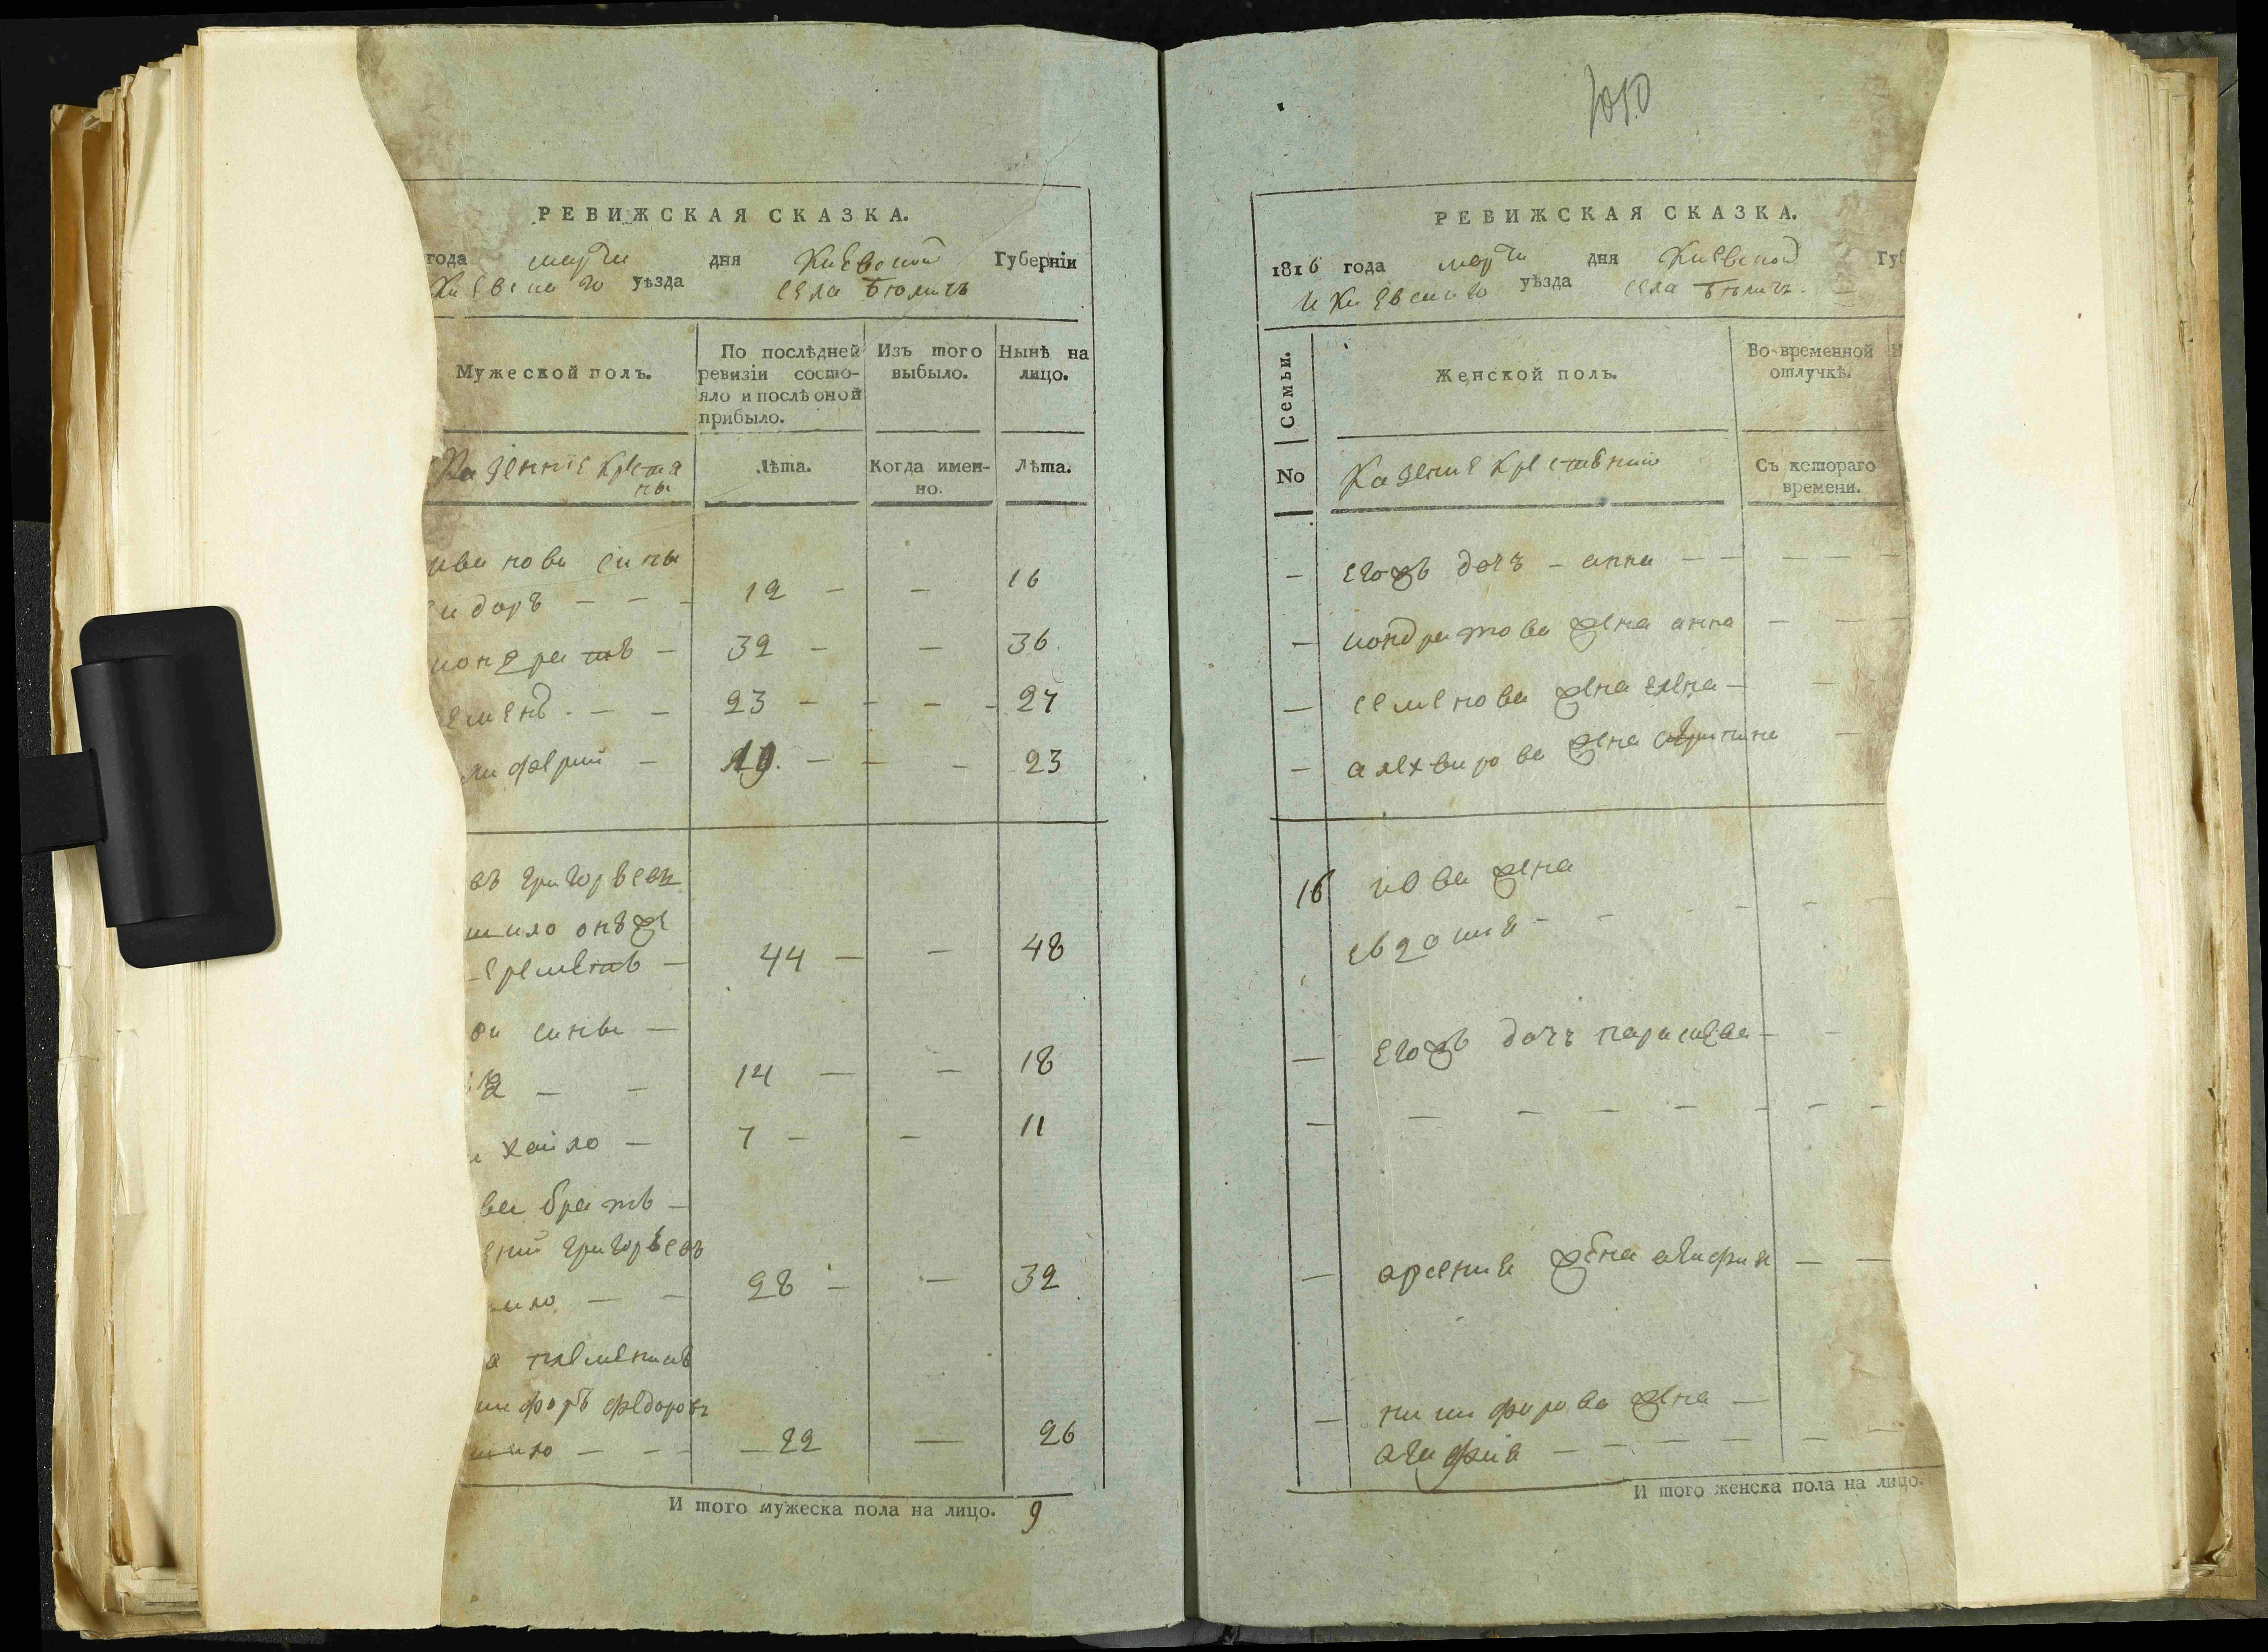 РЕВИЖСКАЯ СКАЗКА.
года марта дня Киевской Губернїи
Киевскаго уѣзда села Бѣличъ
Мужеской полъ.
По послѣдней ревизїи состо-
яло и послѣ оной
прибыло.
Изъ того
выбыло.
Нынѣ на
лицо.
Казенние креста
ны
Лѣта.
Когда имен-
но.
Лѣта.
ивнови сины
идоръ — — — 12 — — 16
кондратъ — 32 — — 36
еменъ — — 23 — — — 27
лиферий — 19. — — — 23
въ григорьевъ
шило онъже
еремѣтъ — 44 — — 48
ви сины —
— — 14 — — 18
хайло — 7 — — 11
ва братъ —
ений григорьевъ
ило — — 28 — — 32
а племеникъ
ифоръ федоровъ
шило — — — — 22 — 26
И того мужеска пола на лицо. 9
1050
РЕВИЖСКАЯ СКАЗКА.
1816 года марта дня Киевской Губ
Киевскаго уѣзда села Бѣличъ.
Семьи.
Женской полъ.
Во временной
отлучкѣ.
No
Казение крестянки
Съ котораго
времени.
— егожъ дочъ — анна — — — — —
— кондратова жена анна — — —
— семенова жена елена — —
— алехвирова жена —
16 иова жена
евдокия — — — — — —
— егожъ дочъ параскева — —
— — — — — — — —
— арсения жена агафия — —
— никифорова жена —
агафия — — — — — — —
И того женска пола на лицо.